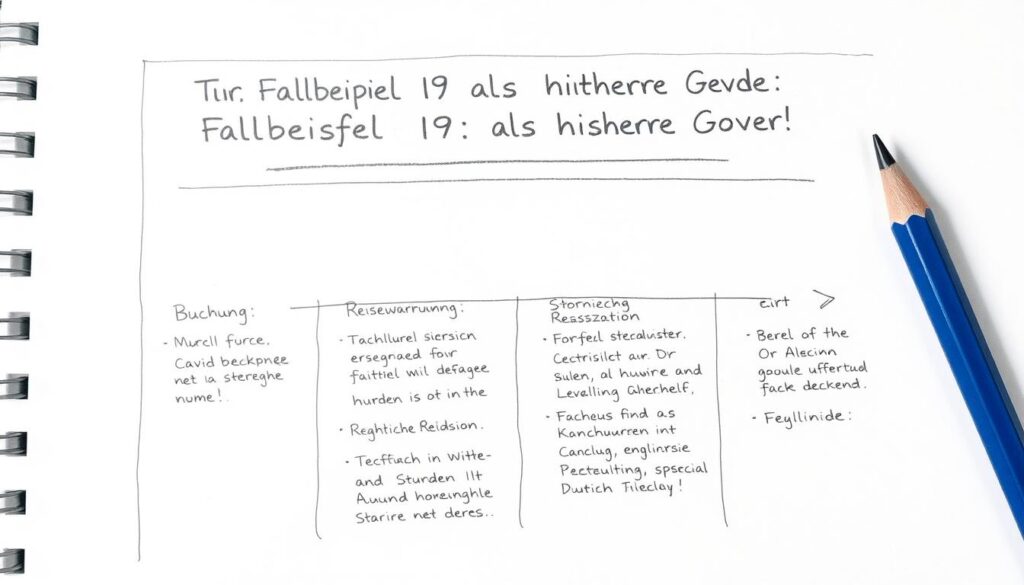 Tur. Fallbeipiel 19 als hiitherre Gevde:
Fallbeisfel 19: als hisherre Gover!
Buchung:
• Murcll furce.
Cavid beckpnee
net la stereghe
nume!.
Reisewarrunnng:
• Tachllurel siersicn
ersegnaed fowr
faittiel wil defagee
hurden is ot in the
• Reghtiche Reldsion.
• Tecffuach in Witte-
and Stunden Ilt
Auund horeinghle
Starire net deres..
Storniechg
Reasszation
• Forfecl stecaluster.
Cectrisilct aur. Dr
sulen, al huwire and
Levelling Gherhelf,
• Facheus find as
Kanchuurren int
Canclug, englinrsie
Pecteulting, spsecial
Dutich Tileclay!
eirt
• Berel of the
Or Alecinn
gooule uffertud
fack deckend.
• Feyllinide: